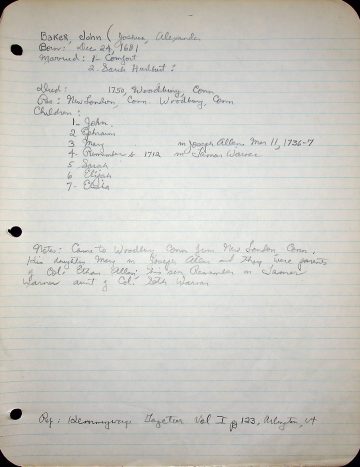 Baker, John (Joshua, Alexander
Born: Dec 24, 1681
Married: 1- Comfort
2. Sarah Hurlbut?
Died: 1750, Woodbury, Conn
Res: New London, Conn. Woodbury, Conn
Children:
1- John
2 Ephraim
3 Mary m Joseph Allen Mar 11, 1736-7
4- Remember b 1712 m
5 Sarah
6 Elijah
7-
Notes: Came to Woodbury Conn from New London, Conn.
His daughter Mary m Joseph Allen and they were parents
of Col. Ethan Allen; his Remember m
Warner aunt of Col. Seth Warner
Ref: Hemmenway Gazeteer Vol I p 123, Arlington, Vt